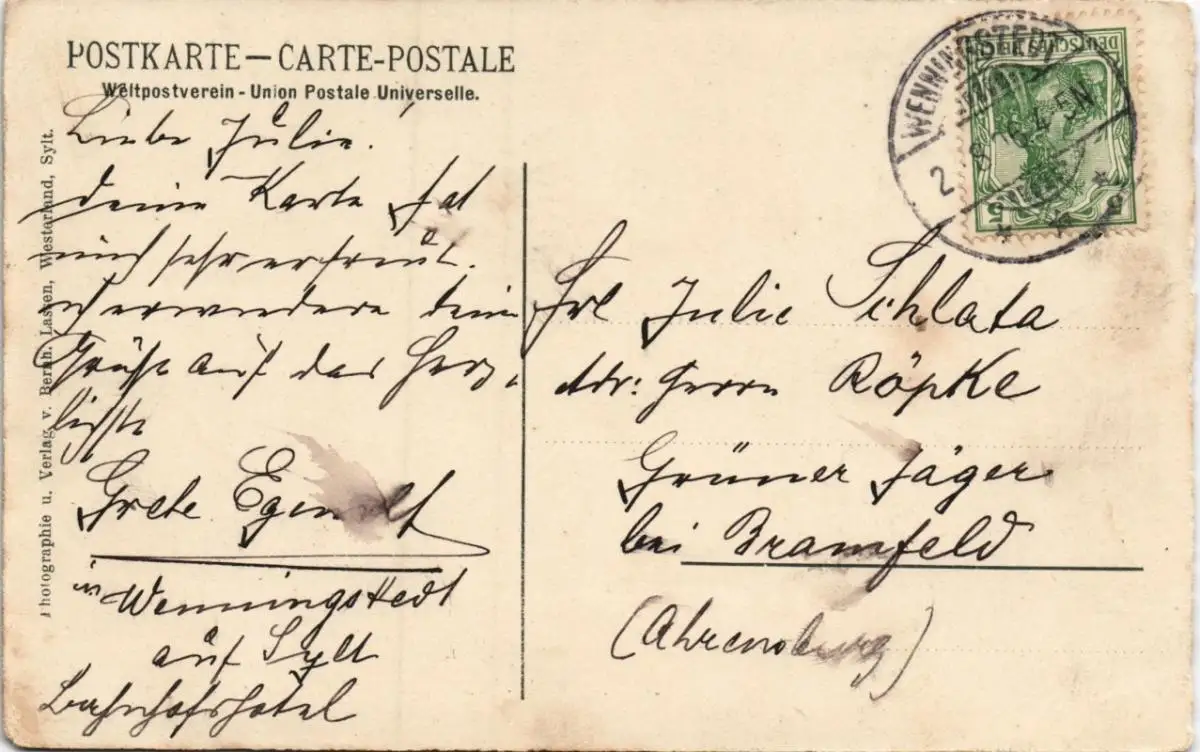 POSTKARTE — CARTE-POSTALE
Weltpostverein - Union Postale Universelle.
Liebe Julie.
deine Karte hat
mich sehr erfreut.
erwiedere deine
Grüße auf das Herz-
lichste
Grete
in Wenningstedt
auf Sylt
Bahnhofshotel
Photographie u. Verlag v. Bernh. Lassen, Westerland, Sylt.
WENNINGSTEDT
5-6 N
DEUTSCHES REICH
5 5
Frl Julie Schlata
Adr: Herrn Röpke
Grüner Jäger
bei Bramfeld
(Ahrensburg)